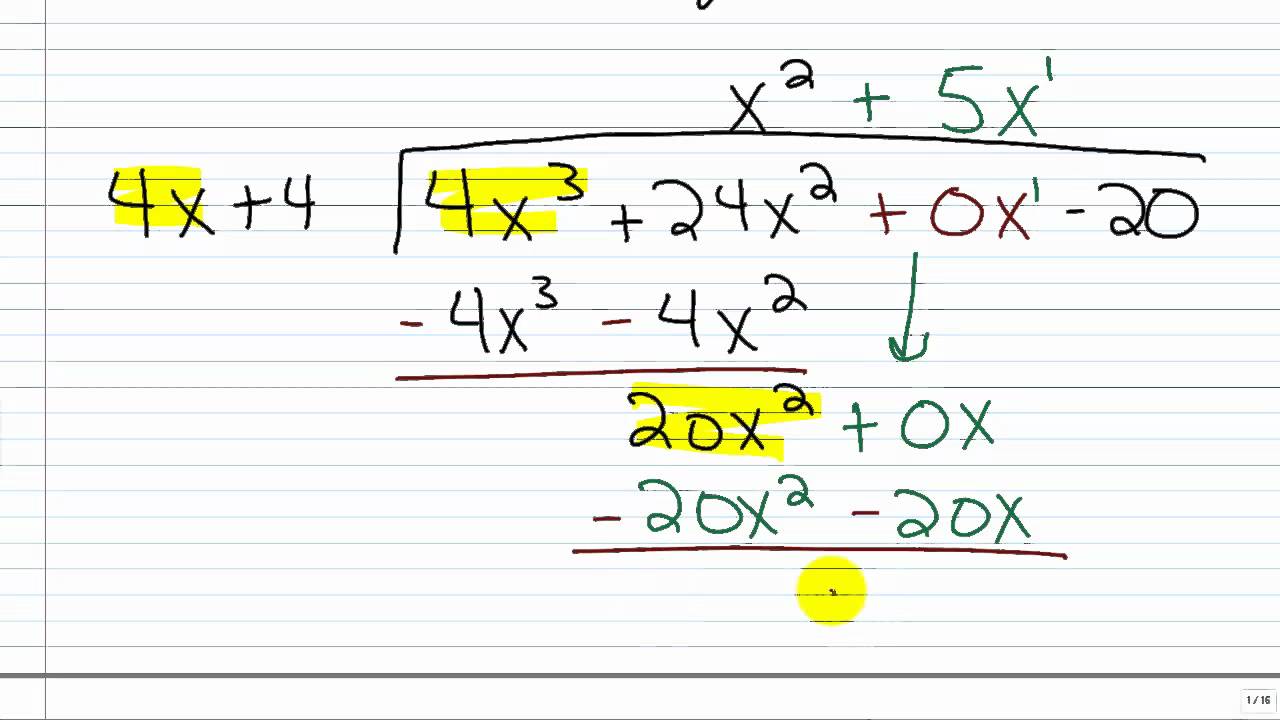 x² + 5x¹
4x + 4 4x³ + 24x² + 0x¹ - 20
- 4x³ - 4x²
20x² + 0x
- 20x² - 20x
1 / 16